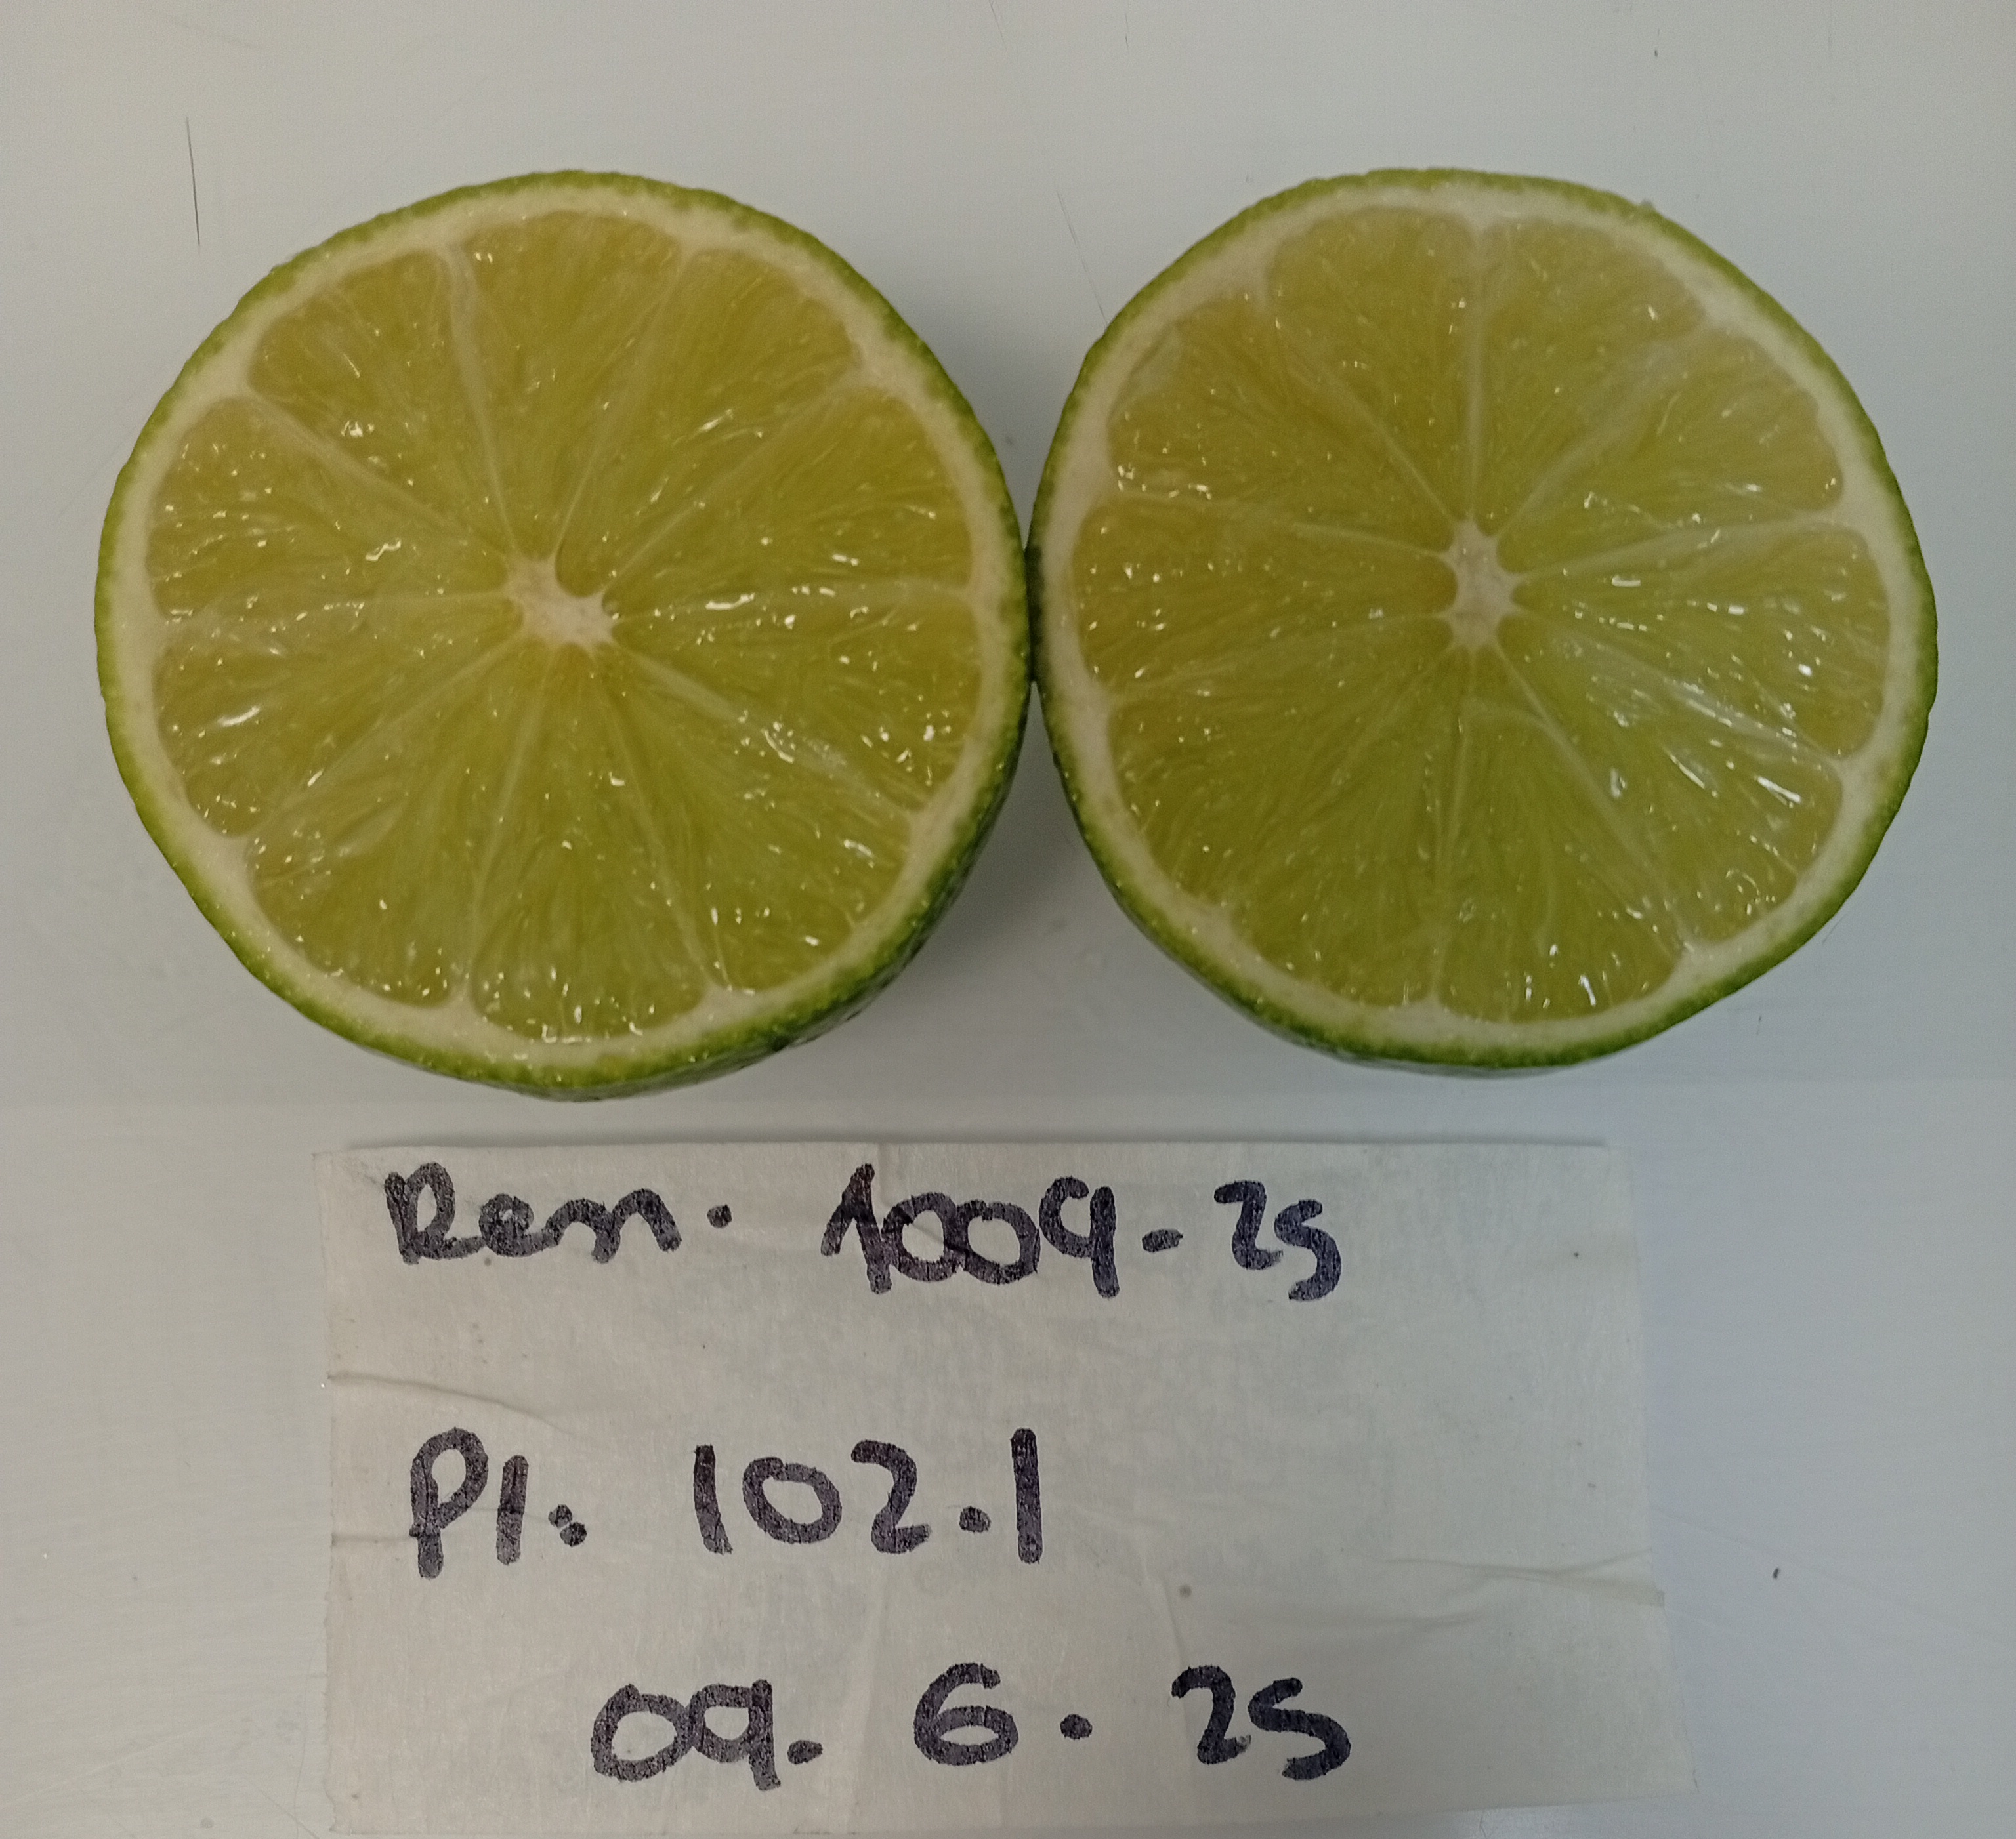 Rem. 1009-25
Pl: 102.1
09. 6. 25